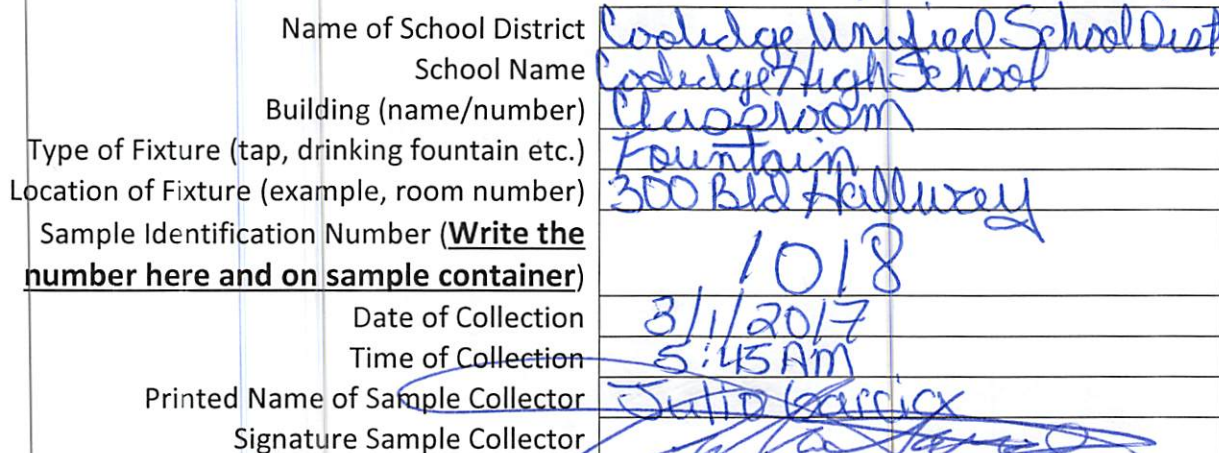 Name of School District Coolidge Unified School Dist
School Name Coolidge High School
Building (name/number) Classroom
Type of Fixture (tap, drinking fountain etc.) Fountain
Location of Fixture (example, room number) 300 Bld Hallway
Sample Identification Number (Write the
number here and on sample container) 1018
Date of Collection 3/1/2017
Time of Collection 5:45 AM
Printed Name of Sample Collector Julio
Signature Sample Collector